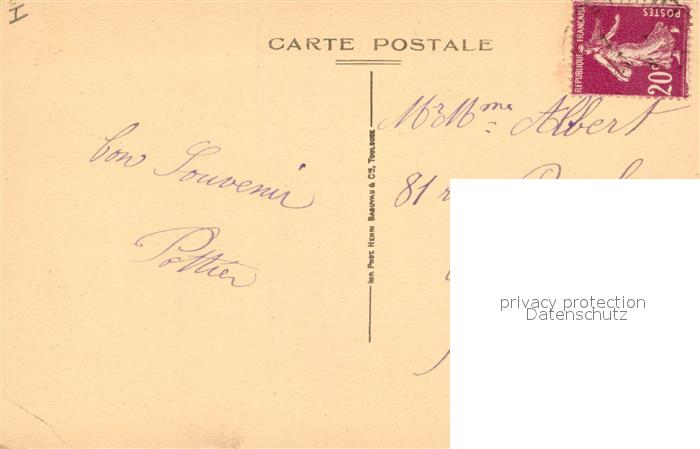 I
CARTE POSTALE
POSTES
REPUBLIQUE FRANCAISE
20c
bon Souvenir
Pottier
Imp. Phot. Henri Basuyau & Cie, Toulouse
Mr Mme Albert
81 r
privacy protection
Datenschutz